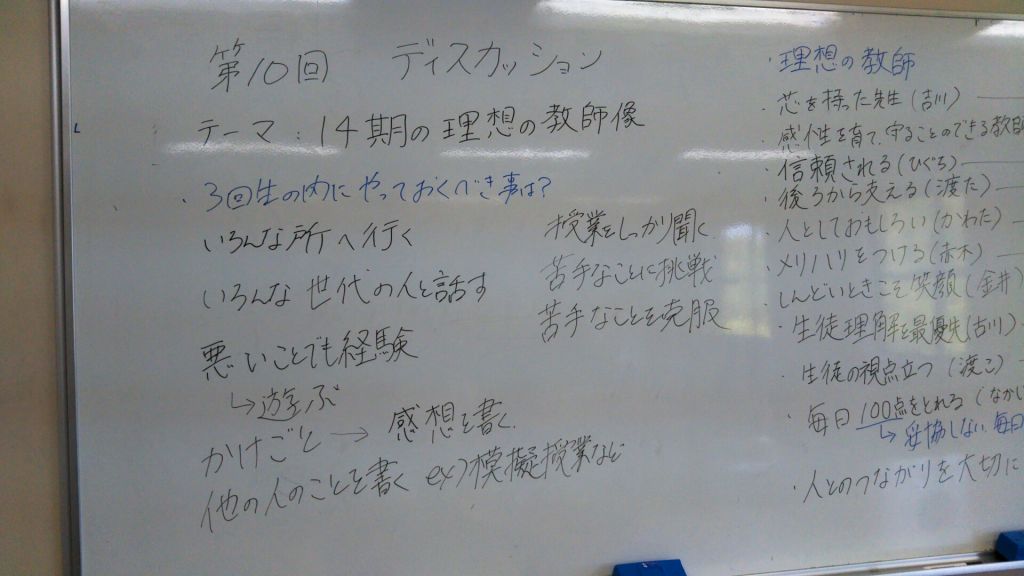 第10回 ディスカッション
テーマ:14期の理想の教師像
・3回生の内にやっておくべき事は?
いろんな所へ行く
いろんな世代の人と話す
悪いことでも経験
↳遊ぶ
かけごと → 感想を書く
他の人のことを書く ex)模擬授業など
授業をしっかり聞く
苦手なことに挑戦
苦手なことを克服
・理想の教師
・芯を持った先生(古川)
・感性を育て、守ることのできる教師
・信頼される(ひぐろ)
・後ろから支える(渡た)
・人としておもしろい(かわた)
・メリハリをつける(赤木)
・しんどいときこそ笑顔(金井)
・生徒理解を最優先(古川)
・生徒の視点立つ(渡こ)
・毎日100点をとれる(なかじ
↳妥協しない、毎日
・人とのつながりを大切に